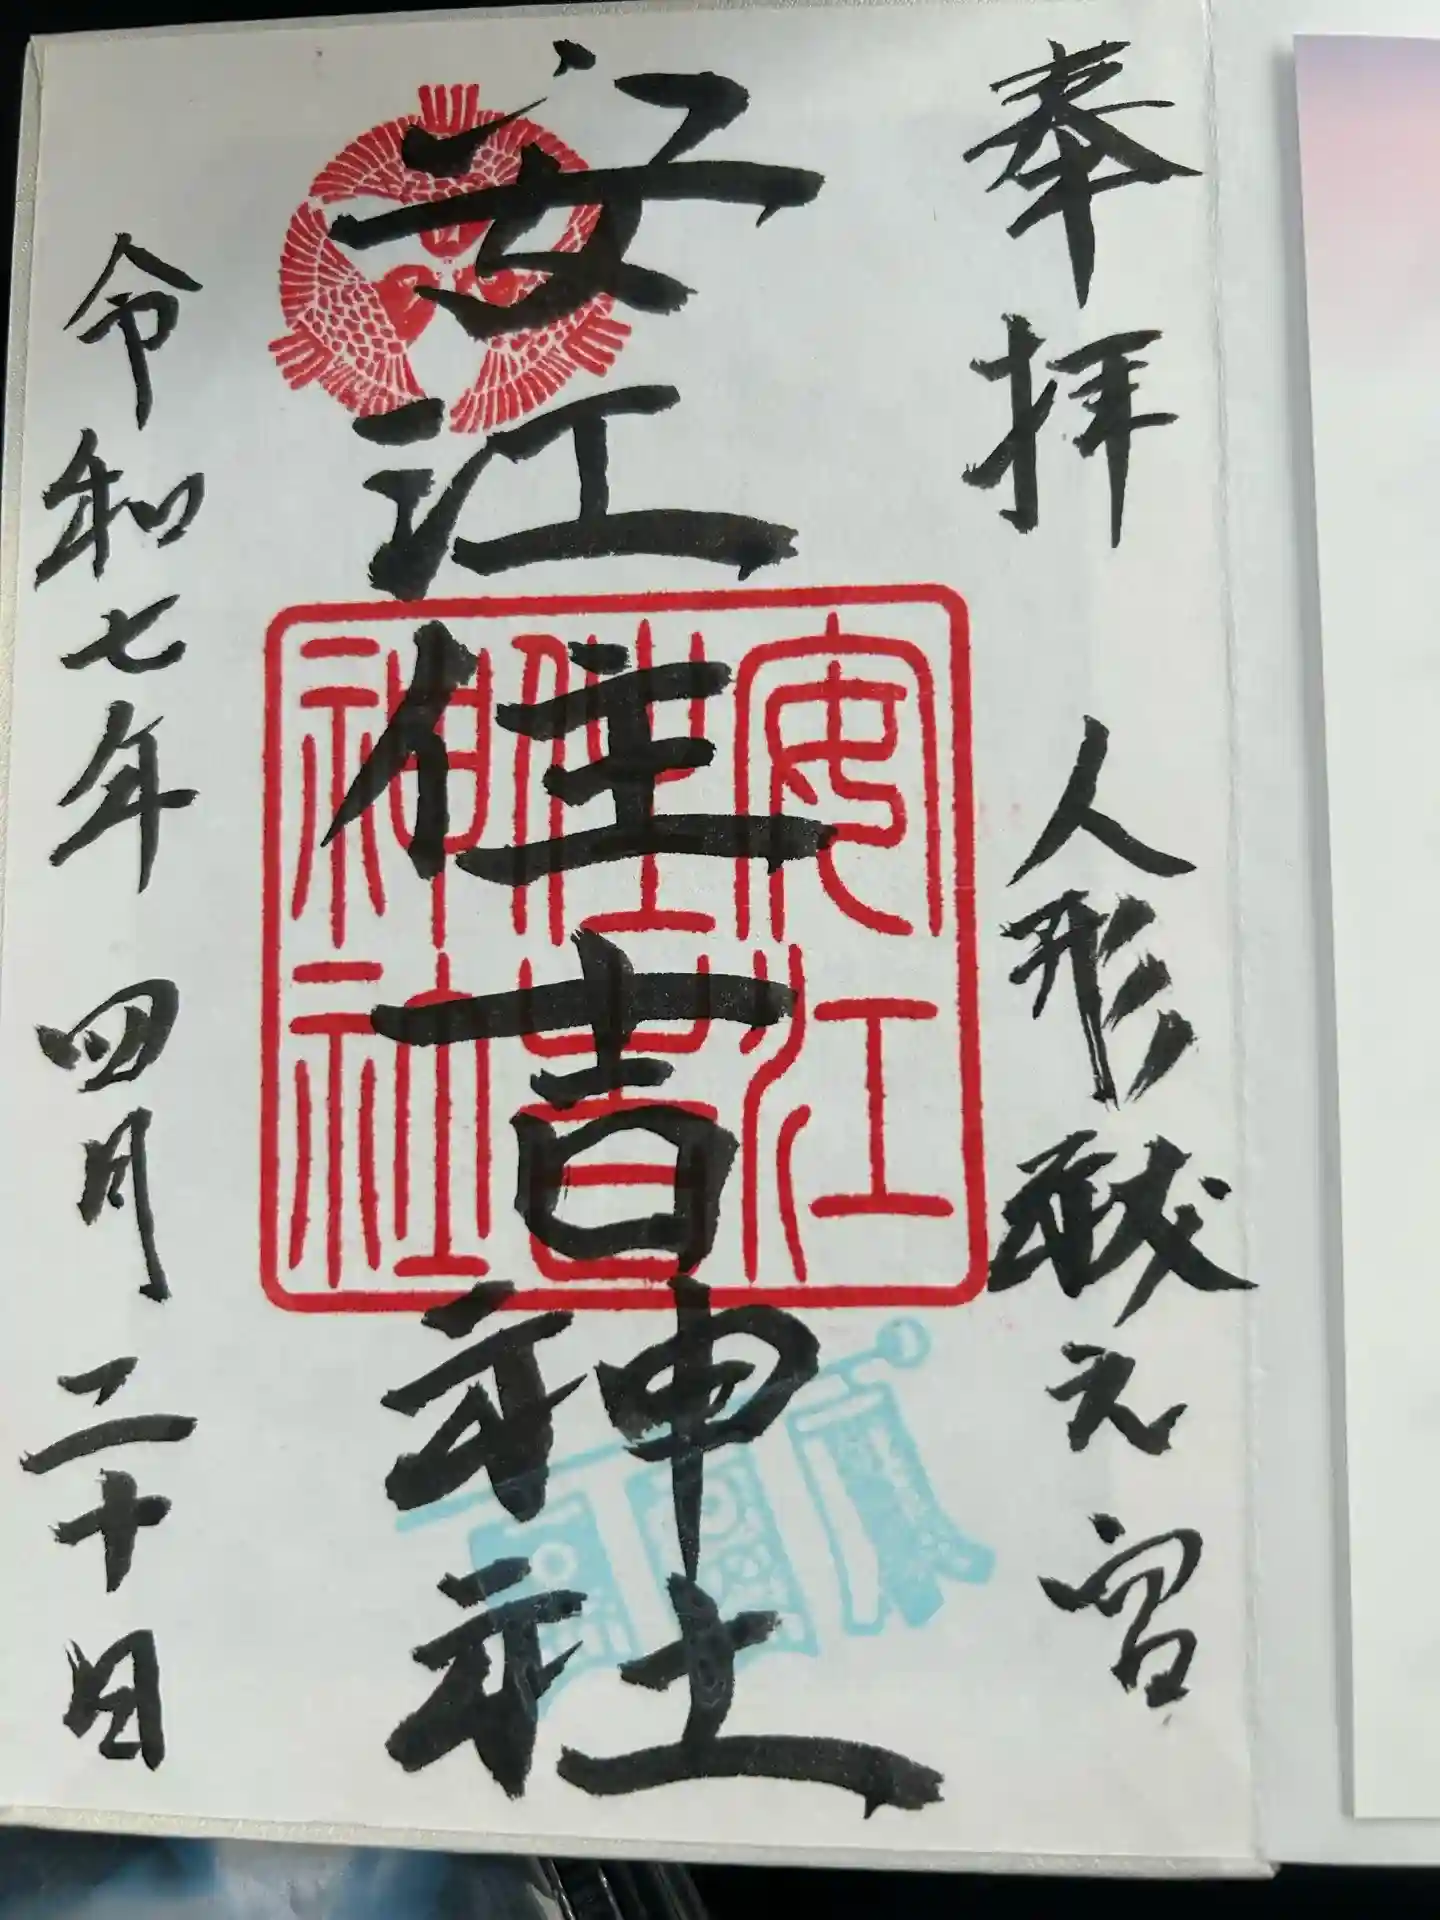 奉拝 人形 元宮
安江住吉神社
令和七年 四月 二十日
安江
住吉
神社